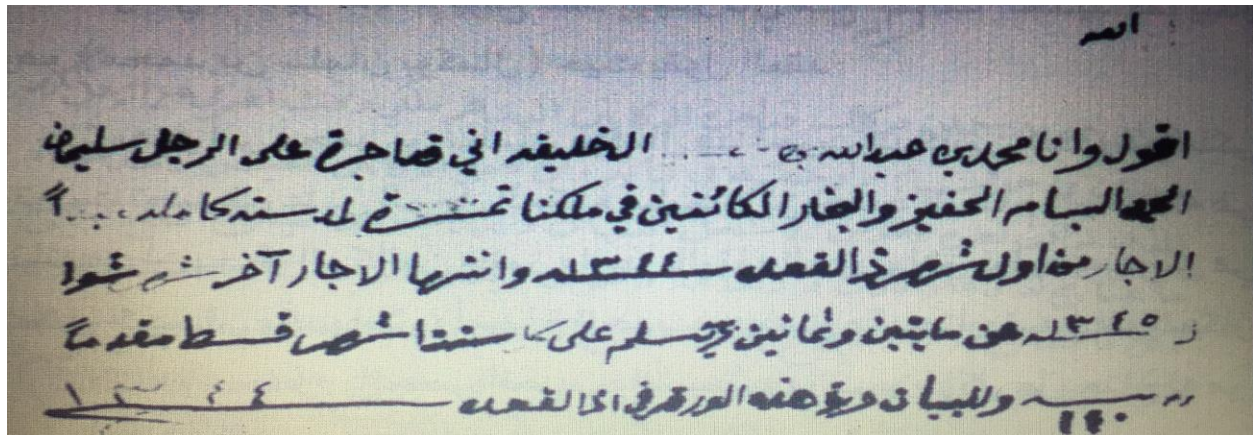 الله
اقول وانا محمد بن عبدالله بن ..... الخليفه اني قد اجرة على الرجل سليمان
الحفيز والبخار الكائنين في ملكنا لمدة سنه كامله ....
الاجار من اول شهر ذالقعده سنة ١٣٤٤ه وانتها الاجار آخر شهر شوا
ل ١٣٤٥ه عن مايتين وثمانين تسلم على ستتا شهر قسط مقدماً
١٤٠ وللبيان هذه الورقه في القعده ١٣٤٤